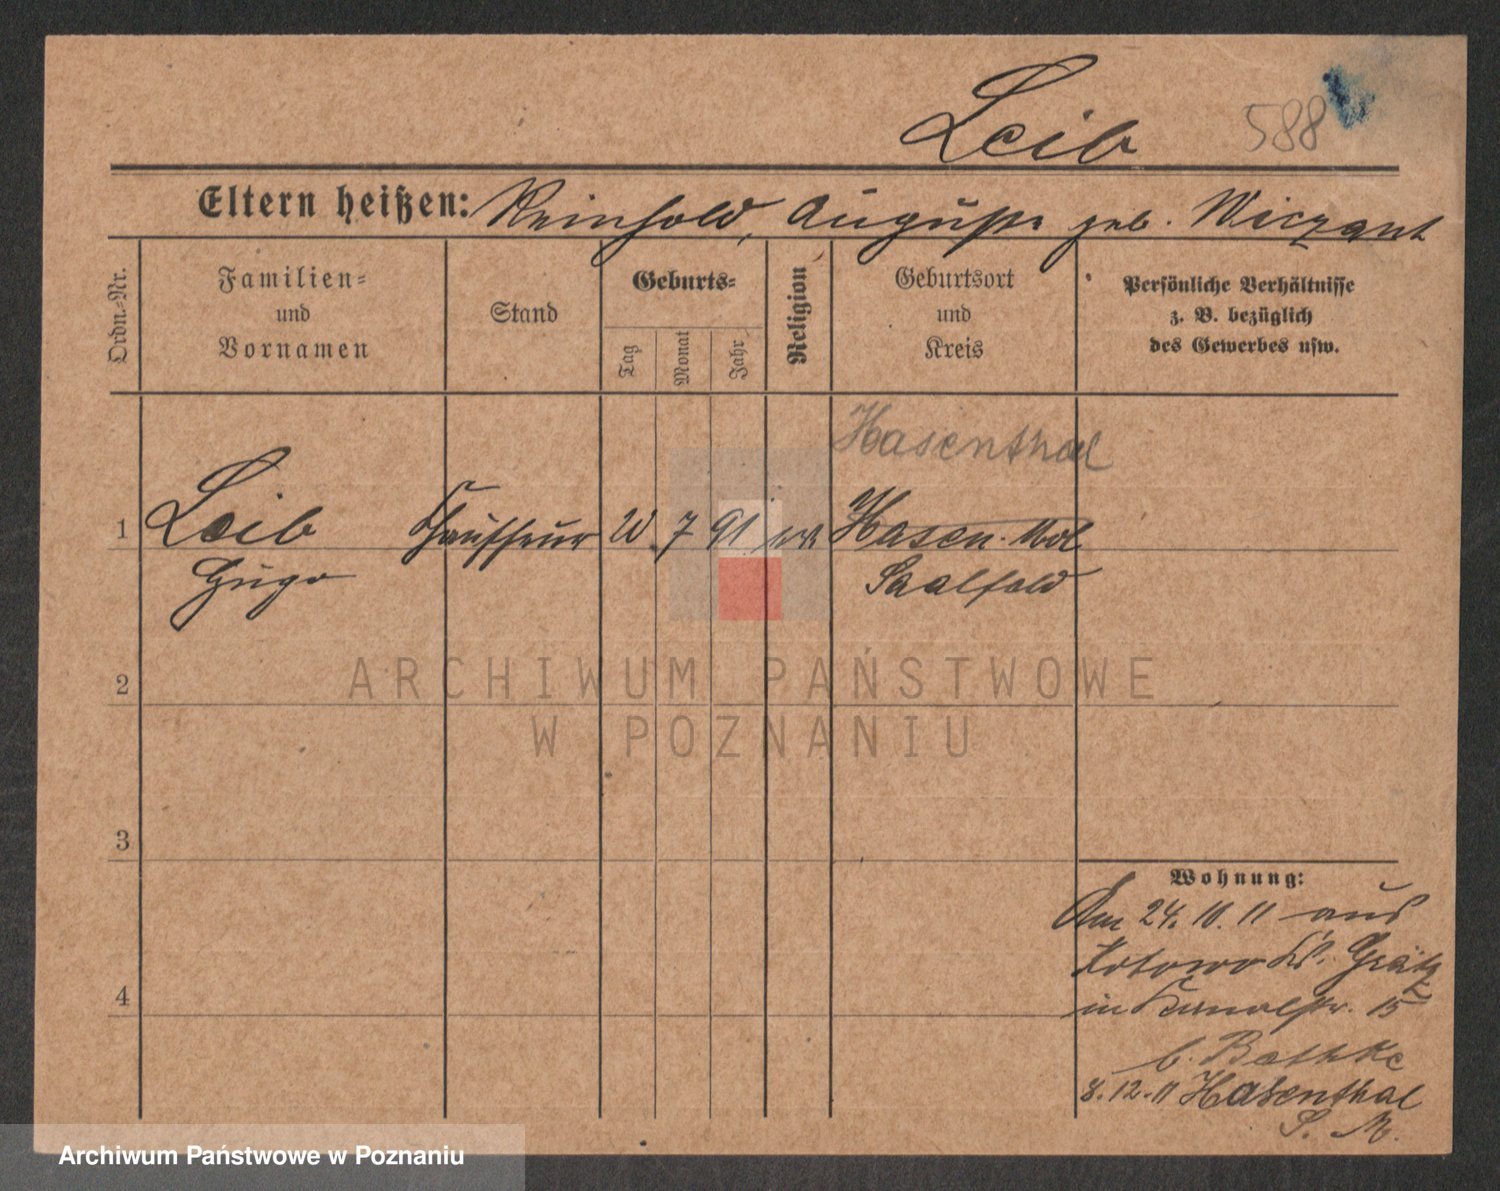 Leib 588
Eltern heißen: Reinhold, Auguste geb.
Ordn.-Nr.
Familien-
und
Vornamen
Stand
Geburts-
Tag
Monat
Jahr
Religion
Geburtsort
und
Kreis
Persönliche Verhältnisse
z. B. bezüglich
des Gewerbes usw.
Hasenthal
1 Leib Chauffeur 20 7 91 ev Hasen
Hugo Saalfeld
2
ARCHIWUM PAŃSTWOWE
W POZNANIU
3
Wohnung:
Am 24. 10. 11 aus
Kotowo Kr. Grätz
4
in Kanalstr. 15
b. Bethke
8. 12. 11 Hasenthal
S. M.
Archiwum Państwowe w Poznaniu